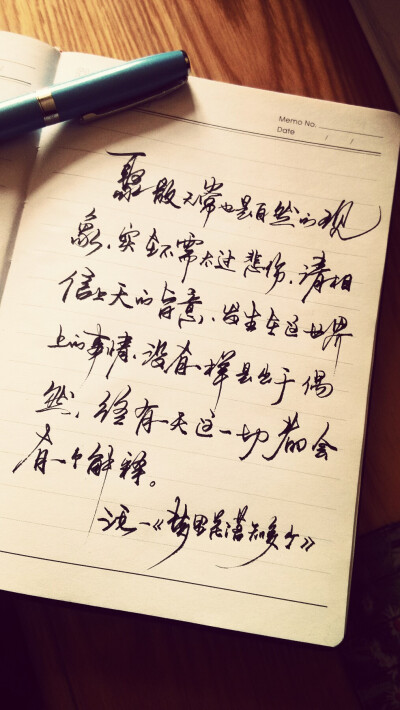 Memo No.
Date / /
聚散无常也是自然的现
象,实在不需太过悲伤,请相
信上天的旨意,发生在这世界
上的事情,没有一样是出于偶
然,终有一天这一切都会
有一个解释。
记—《梦里花落知多少》